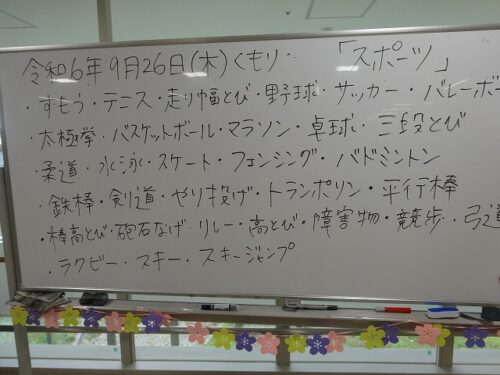 令和6年9月26日(木)くもり 「スポーツ」
・すもう・テニス・走り幅とび・野球・サッカー・バレーボー
・太極拳・バスケットボール・マラソン・卓球・三段とび
・柔道・水泳・スケート・フェンシング・バドミントン
・鉄棒・剣道・やり投げ・トランポリン・平行棒
・棒高とび・砲石なげ・リレー・高とび・障害物・競歩・弓道
・ラクビー・スキー・スキージャンプ